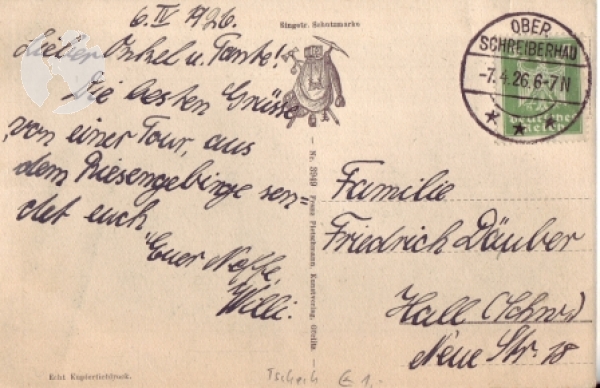 6. IV 1926.
Lieber Onkel u. Tante!
Die besten Grüsse
von einer Tour, aus
dem Riesengebirge sen=
det euch
Euer Neffe,
Willi.
Echt Kupfertiefdruck.
Eingetr. Schutzmarke
Nr. 3949 Franz Pietschmann, Kunstverlag, Görlitz
OBER
SCHREIBERHAU
-7.4.26.6-7N
* * *
Deutsches
Reich
Familie
Friedrich Däuber
Hall (Schw.)
Neue Str. 18
Tschech
1,-